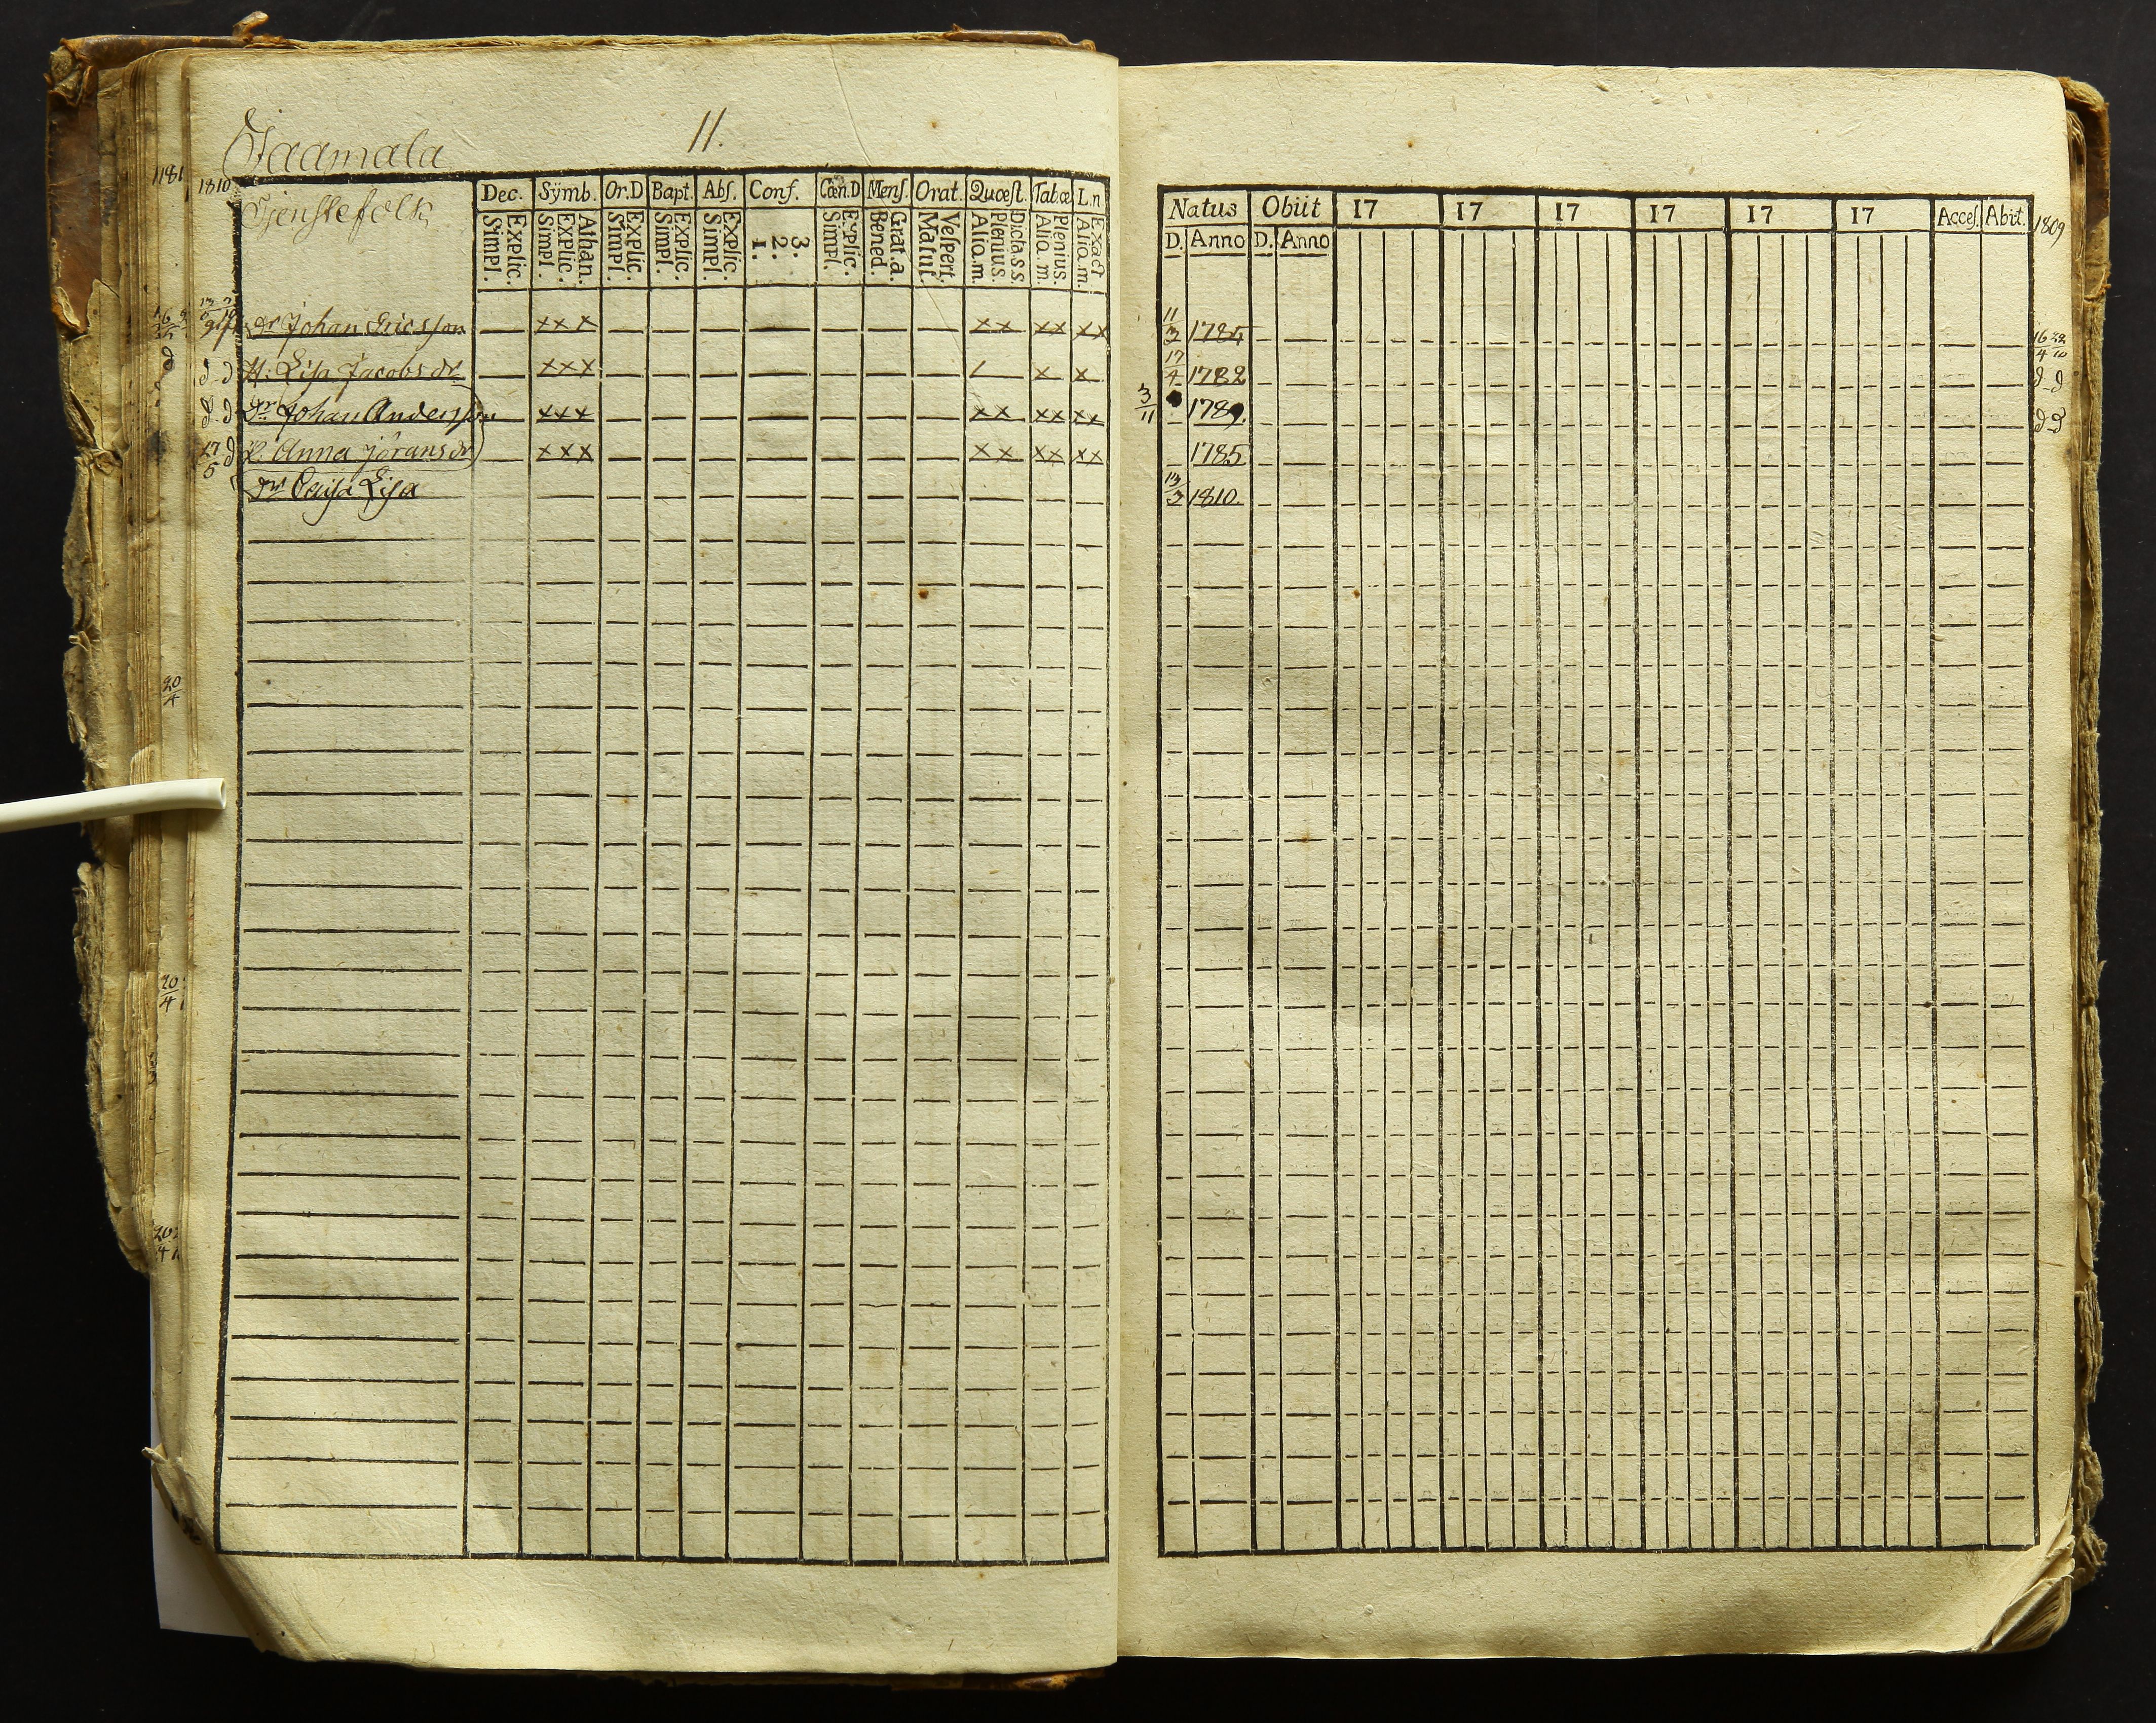 Jaamala 11.
1810
Tjenstefolk
Dec. Sÿmb. Or.D Bapt. Abs. Conf. Cœn.D Mens. Orat. Quæst. Tabæ L.n
Simpl. Explic. Simpl. Explic. Athan. Simpl. Explic. Simpl. Explic. Simpl. Explic. 1. 2. 3. Simpl. Explic. Bened. Grat.a. Matut. Vespert. Aliq.m. Plenius. Dicta.s.s. Aliq.m. Plenius. Aliq.m. Exact
Natus Obiit 17 17 17 17 17 17 Acces. Abit. 1809
D. Anno D. Anno
Dr Johan Ericsson xxx xx xx xx 11/3 1784 16/4 28/10
H: Lisa Jacobsdr xxx / x x 17/4 1782 d d
Dr Johan Andersson xxx xx xx xx 3/11 1789. d d
P. Anna Jöransdr xxx xx xx xx 1785
Dr Caisa Lisa 13/3 1810.